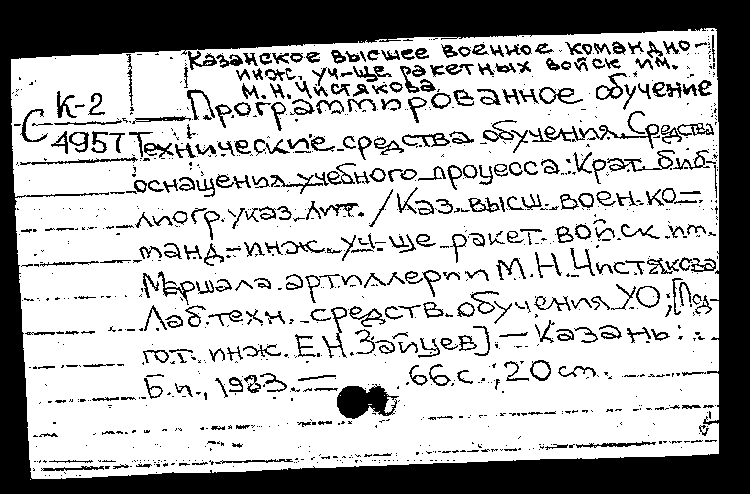 Казанское высшее военное командно-
инж. уч-ще ракетных войск им.
М.Н.Чистякова
К-2
Программированное обучение
С 4957 Технические средства обучения. Средства
оснащения учебного процесса: Крат. биб-
лиогр. указ. лит. / Каз. высш. воен. ко-
манд.-инж. уч-ще ракет. войск им.
Маршала артиллерии М.Н.Чистякова.
Лаб. техн. средств обучения УО; [Под-
гот. инж. Е.Н.Зайцев]. — Казань:
Б.и., 1983. — 66 с.; 20 см.